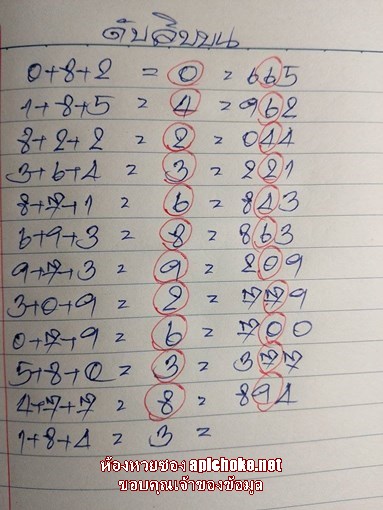 ดับสิบบน
0+8+2 = 0 = 665
1+8+5 = 4 = 962
8+2+2 = 2 = 044
3+6+4 = 3 = 221
8+7+1 = 6 = 843
6+9+3 = 8 = 863
9+7+3 = 9 = 209
3+0+9 = 2 = 779
0+7+9 = 6 = 700
5+8+0 = 3 = 377
4+7+7 = 8 = 894
1+8+4 = 3 =
ห้องหวยซอง aplchoke.net
ขอบคุณเจ้าของข้อมูล